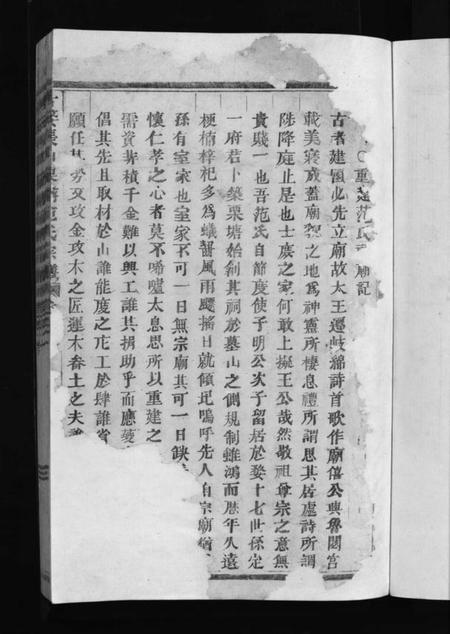 重建范氏 廟記
古者建國必先立廟故太王遷岐綿詩首歌作廟僖公興魯閟宮
載美寢成蓋廟祭之地為神靈所棲息禮所謂思其居處詩所謂
陟降庭止是也士庶之家何敢上擬王公哉然敬祖尊宗之意無
貴賤一也吾范氏自節度使子明公次子留居於婺十七世孫定
一府君卜築栗塘始創其祠於墓山之側規制雖鴻而歷年久遠
梗楠梓杞多為蟻蠶風雨飃搖日就傾圮嗚呼先人自宗廟猶
孫有室家也室家不可一日無宗廟其可一日缺
懷仁孝之心者莫不唏噓太息思所以重建之
需貲非積千金難以興工誰其捐助乎而應
倡其先且取材於山誰能度之庀工於肆誰
願任其勞及攻金攻木之匠運木畚土之夫